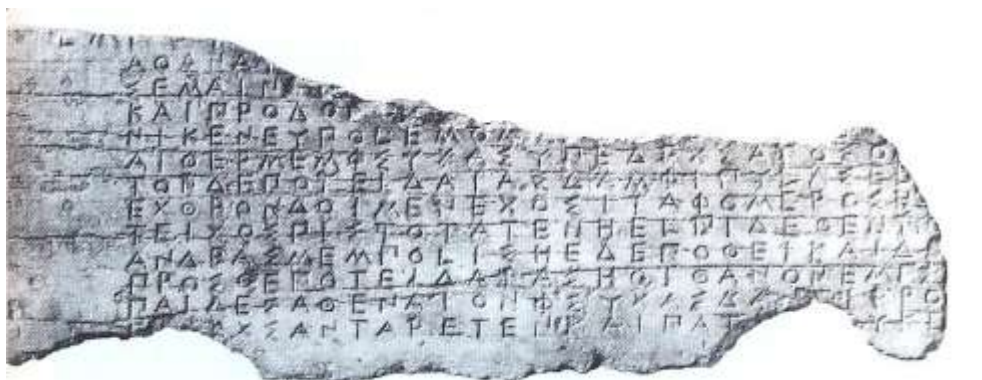 ΑΘΑΝΑ
ΣΕΜΑΙΝ
ΚΑΙΠΡΟΓΟ
ΝΙΚΕΝΕΥΠΟΛΕΜΟΜ
ΑΙΘΕΡΜΕΜΦΣΥΧΑΣΥΠΕΔΕΧΣΑΤΟΣΟ
ΤΟΝΔΕΠΟΤΕΙΔΑΙΑΣΔΑΜΦΙΠΥΛΑΣΕ
ΕΧΘΡΟΝΔΟΙΜΕΝΕΧΟΣΙΤΑΦΟΜΕΡΟΣΗ
ΤΕΙΧΟΣΠΙΣΤΟΤΑΤΕΝΗΕΛΠΙΔΕΘΕΝ
ΑΝΔΡΑΣΜΕΜΠΟΛΙΣΗΕΔΕΠΟΘΕΙΚΑΙΔ
ΠΡΟΣΘΕΠΟΤΕΙΔΑΙΑΣΗΟΙΘΑΝΟΝΕΜΠΡ
ΠΑΙΔΕΣΑΘΕΝΑΙΟΝΦΣΥΧΑΣΔΑΝΤΙΡΡΟ
ΧΣΑΝΤΑΡΕΤΕΝΚΑΙΠΑΤ